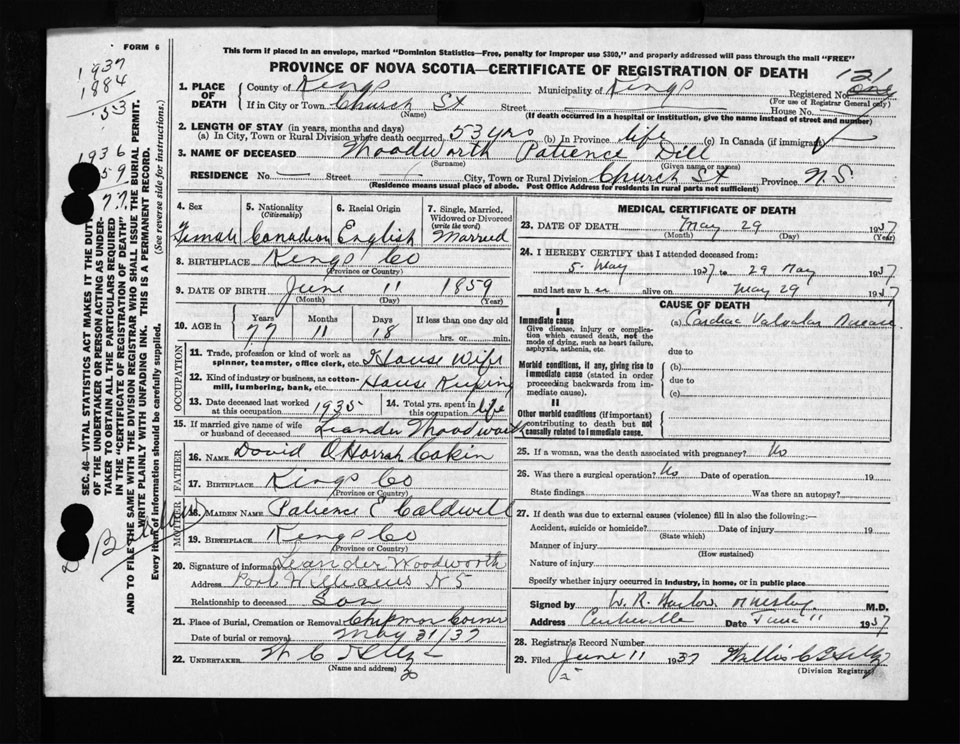 FORM 6
1937
1884
53
1936
59
77
This form if placed in an envelope, marked "Dominion Statistics—Free, penalty for improper use $300," and properly addressed will pass through the mail "FREE"
PROVINCE OF NOVA SCOTIA—CERTIFICATE OF REGISTRATION OF DEATH
121
1. PLACE OF DEATH County of Kings Municipality of Kings Registered No.
(For use of Registrar General only)
If in City or Town Church St Street House No.
(Name) (If death occurred in a hospital or institution, give the name instead of street and number)
2. LENGTH OF STAY (in years, months and days)
(a) In City, Town or Rural Division where death occurred 53 yrs (b) In Province life (c) In Canada (if immigrant)
3. NAME OF DECEASED Woodworth Patience Dill
(Surname) (Given name or names)
RESIDENCE No. — Street — City, Town or Rural Division Church St Province N.S
(Residence means usual place of abode. Post Office Address for residents in rural parts not sufficient)
4. Sex Female
5. Nationality (Citizenship) Canadian
6. Racial Origin English
7. Single, Married, Widowed or Divorced (write the word) Married
8. BIRTHPLACE Kings Co
(Province or Country)
9. DATE OF BIRTH June 11 1859
(Month) (Day) (Year)
10. AGE in Years Months Days If less than one day old
77 11 18 hrs. or min.
OCCUPATION
11. Trade, profession or kind of work as spinner, teamster, office clerk, etc. House Wife
12. Kind of industry or business, as cotton-mill, lumbering, bank, etc. House Keeping
13. Date deceased last worked at this occupation 1935
14. Total yrs. spent in this occupation life
15. If married give name of wife or husband of deceased Leander Woodworth
FATHER
16. NAME David O Harrah Eakin
17. BIRTHPLACE Kings Co
(Province or Country)
MOTHER
18. MAIDEN NAME Patience E Caldwell
19. BIRTHPLACE Kings Co
(Province or Country)
20. Signature of informant Leander Woodworth
Address Port Williams N S
Relationship to deceased Son
21. Place of Burial, Cremation or Removal Chipman Corner
Date of burial or removal May 31/37
22. UNDERTAKER
(Name and address)
MEDICAL CERTIFICATE OF DEATH
23. DATE OF DEATH May 29 1937
(Month) (Day) (Year)
24. I HEREBY CERTIFY that I attended deceased from:
5. May 1937 to 29 May 1937
and last saw her alive on May 29 1937
CAUSE OF DEATH
I
Immediate cause (a) Cardiac Valvular Disease
Give disease, injury or complication which caused death, not the mode of dying, such as heart failure, asphyxia, asthenia, etc.
due to
Morbid conditions, if any, giving rise to immediate cause (stated in order proceeding backwards from immediate cause).
(b)
due to
(c)
II
Other morbid conditions (if important) contributing to death but not causally related to immediate cause.
25. If a woman, was the death associated with pregnancy? No
26. Was there a surgical operation? No Date of operation 19
State findings Was there an autopsy?
27. If death was due to external causes (violence) fill in also the following:—
Accident, suicide or homicide? Date of injury 19
(State which)
Manner of injury
(How sustained)
Nature of injury
Specify whether injury occurred in industry, in home, or in public place
Signed by W. R. M.D.
Address Centreville Date June 11 1937
28. Registrar's Record Number
29. Filed June 11 1937
(Division Registrar)
SEC. 46—VITAL STATISTICS ACT MAKES IT THE DUTY OF THE UNDERTAKER OR PERSON ACTING AS UNDERTAKER TO OBTAIN ALL THE PARTICULARS REQUIRED IN THE "CERTIFICATE OF REGISTRATION OF DEATH" AND TO FILE THE SAME WITH THE DIVISION REGISTRAR WHO SHALL ISSUE THE BURIAL PERMIT.
WRITE PLAINLY WITH UNFADING INK. THIS IS A PERMANENT RECORD.
Every item of information should be carefully supplied. (See reverse side for instructions.)